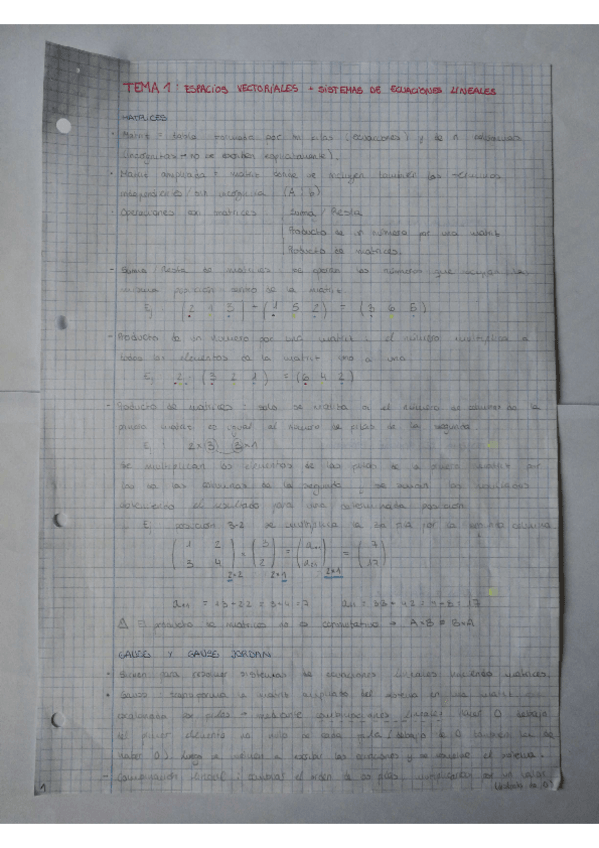 TEMA 1: ESPACIOS VECTORIALES + SISTEMAS DE ECUACIONES LINEALES
MATRICES
• Matriz = tabla formada por m filas (ecuaciones) y de n columnas
(incógnitas → no se escriben explícitamente).
• Matriz ampliada = matriz donde se incluyen también los términos
independientes / sin incógnita (A : b)
• Operaciones con matrices Suma / Resta
Producto de un número por una matriz
Producto de matrices.
- Suma / Resta de matrices: se operan los números que ocupan la
misma posición dentro de la matriz.
Ej (2 1 3) + (1 5 2) = (3 6 5)
- Producto de un número por una matriz: el número multiplica a
todos los elementos de la matriz uno a uno
Ej 2 · (3 2 1) = (6 4 2)
- Producto de matrices: solo se realiza si el número de columnas de la
primera matriz es igual al número de filas de la segunda.
Ej 2×3 3×1
Se multiplican los elementos de las filas de la primera matriz por
los de las columnas de la segunda, se suman los resultados
obteniendo el resultado para una determinada posición.
Ej posición 3-2 se multiplica la 3a fila por la segunda columna
(1 2 3 4) × (3 2) = (a11 a21) = (7 17)
2×2 2×1 2×1
a11 = 1·3+2·2 = 3+4 = 7 a21 = 3·3+4·2 = 9+8 = 17
⚠ El producto de matrices no es conmutativo → A×B ≠ B×A
GAUSS Y GAUSS JORDAN
• Sirven para resolver sistemas de ecuaciones lineales mediante matrices.
• Gauss: transforma la matriz ampliada del sistema en una matriz
escalonada por filas → mediante combinaciones lineales hacer 0 debajo
del primer elemento no nulo de cada fila
haber 0). Luego se vuelven a escribir las ecuaciones y se resuelve el sistema.
- Combinación lineal: cambiar el orden de las filas, multiplicar por un valor
(distinto de 0)
1